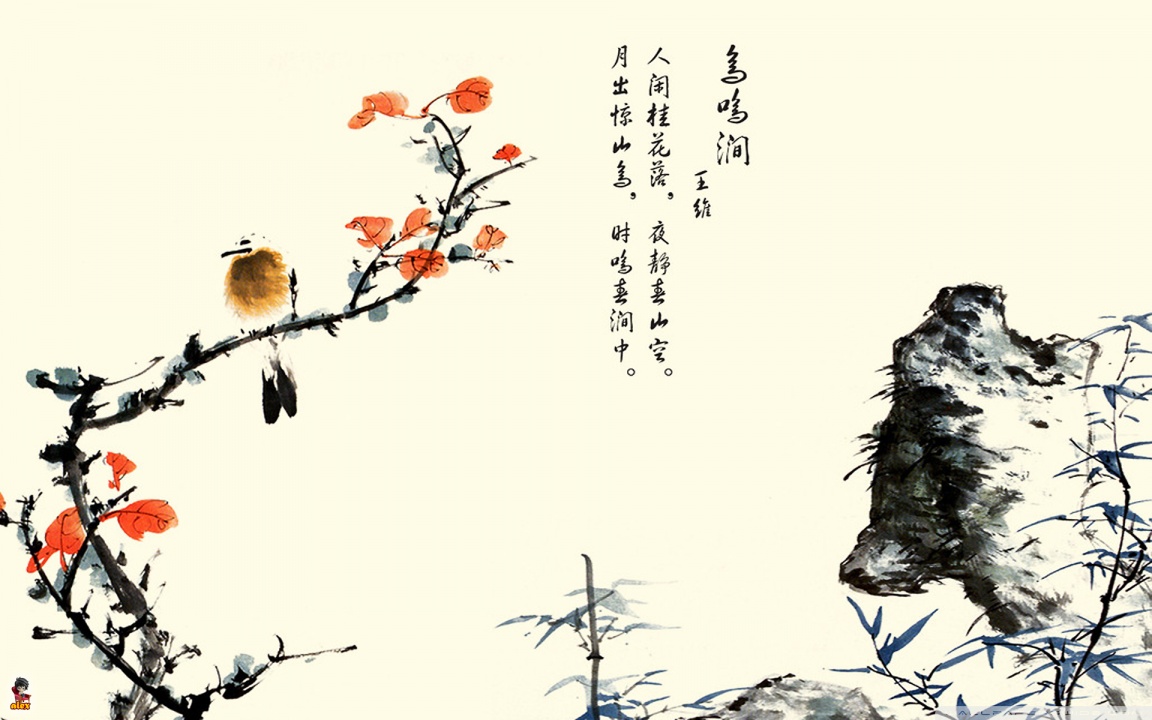 鸟鸣涧
王维
人闲桂花落，夜静春山空。
月出惊山鸟，时鸣春涧中。
alex